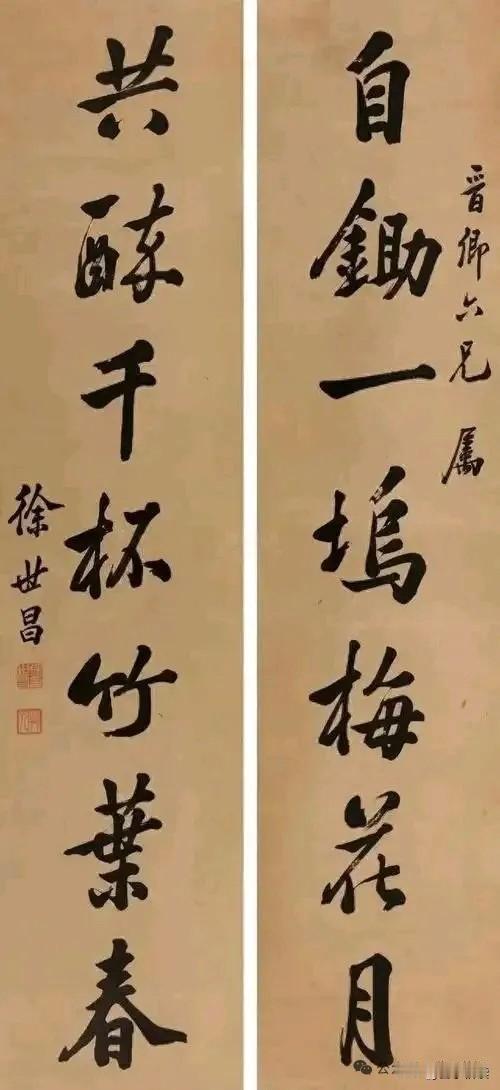 晋卿六兄 属
自鋤一塢梅花月
共醉千杯竹葉春
徐世昌